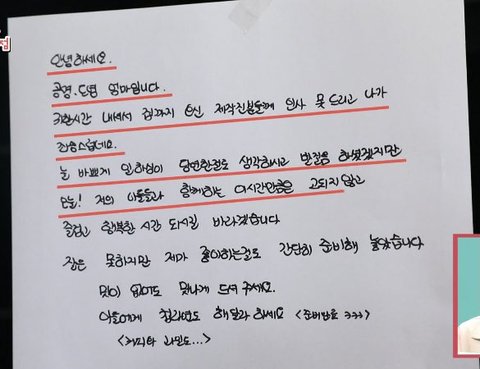 안녕하세요.
공명.도명 엄마입니다.
귀한시간 내셔서 집까지 오신 제작진분들께 인사 못드리고 나가
죄송스럽네요.
늘 바쁘게 일하심이 당연한걸로 생각하시고 받음 하셨겠지만
오늘! 저의 아들들과 함께하는 이시간만큼은 고되지 않고
즐겁고 행복한 시간 되시길 바라겠습니다
잘은 못하지만 제가 좋아하는걸로 간단히 준비해 놓았습니다
맛이 없어도 맛나게 드셔주세요.
아들에게 짜라면도 해달라 하세요 <준비만땅 ㅋㅋㅋ>
<커피와 라면도...>